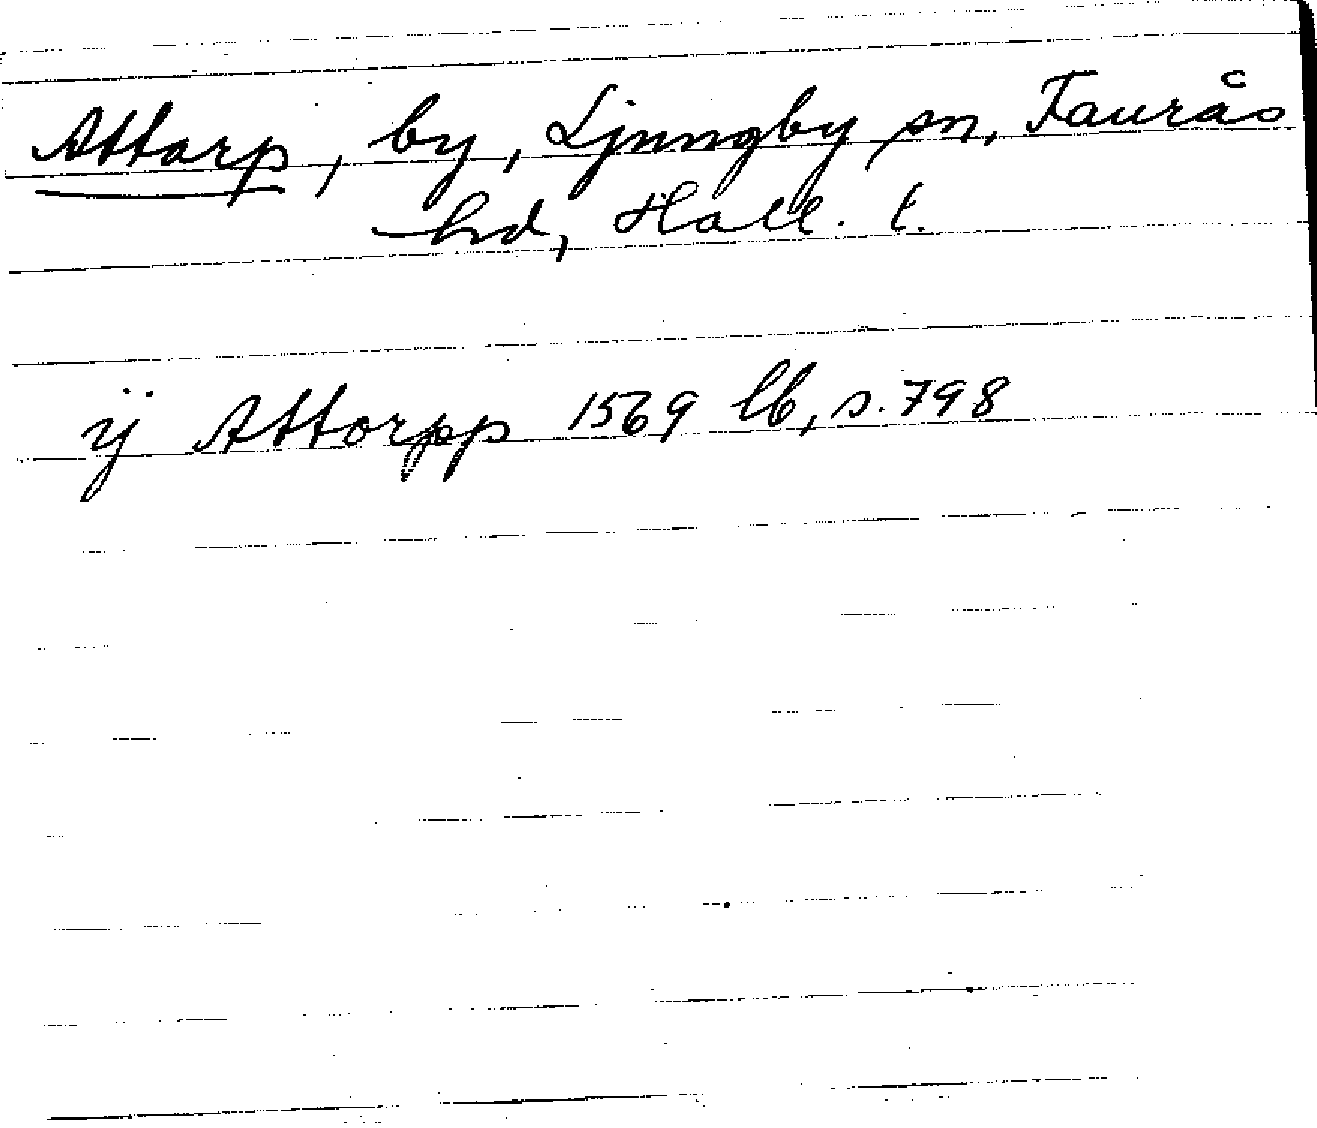 Attarp, by, Ljungby sn, Faurås
hd, Hall. l.
ÿ Attorpp 1569 lb, s. 798